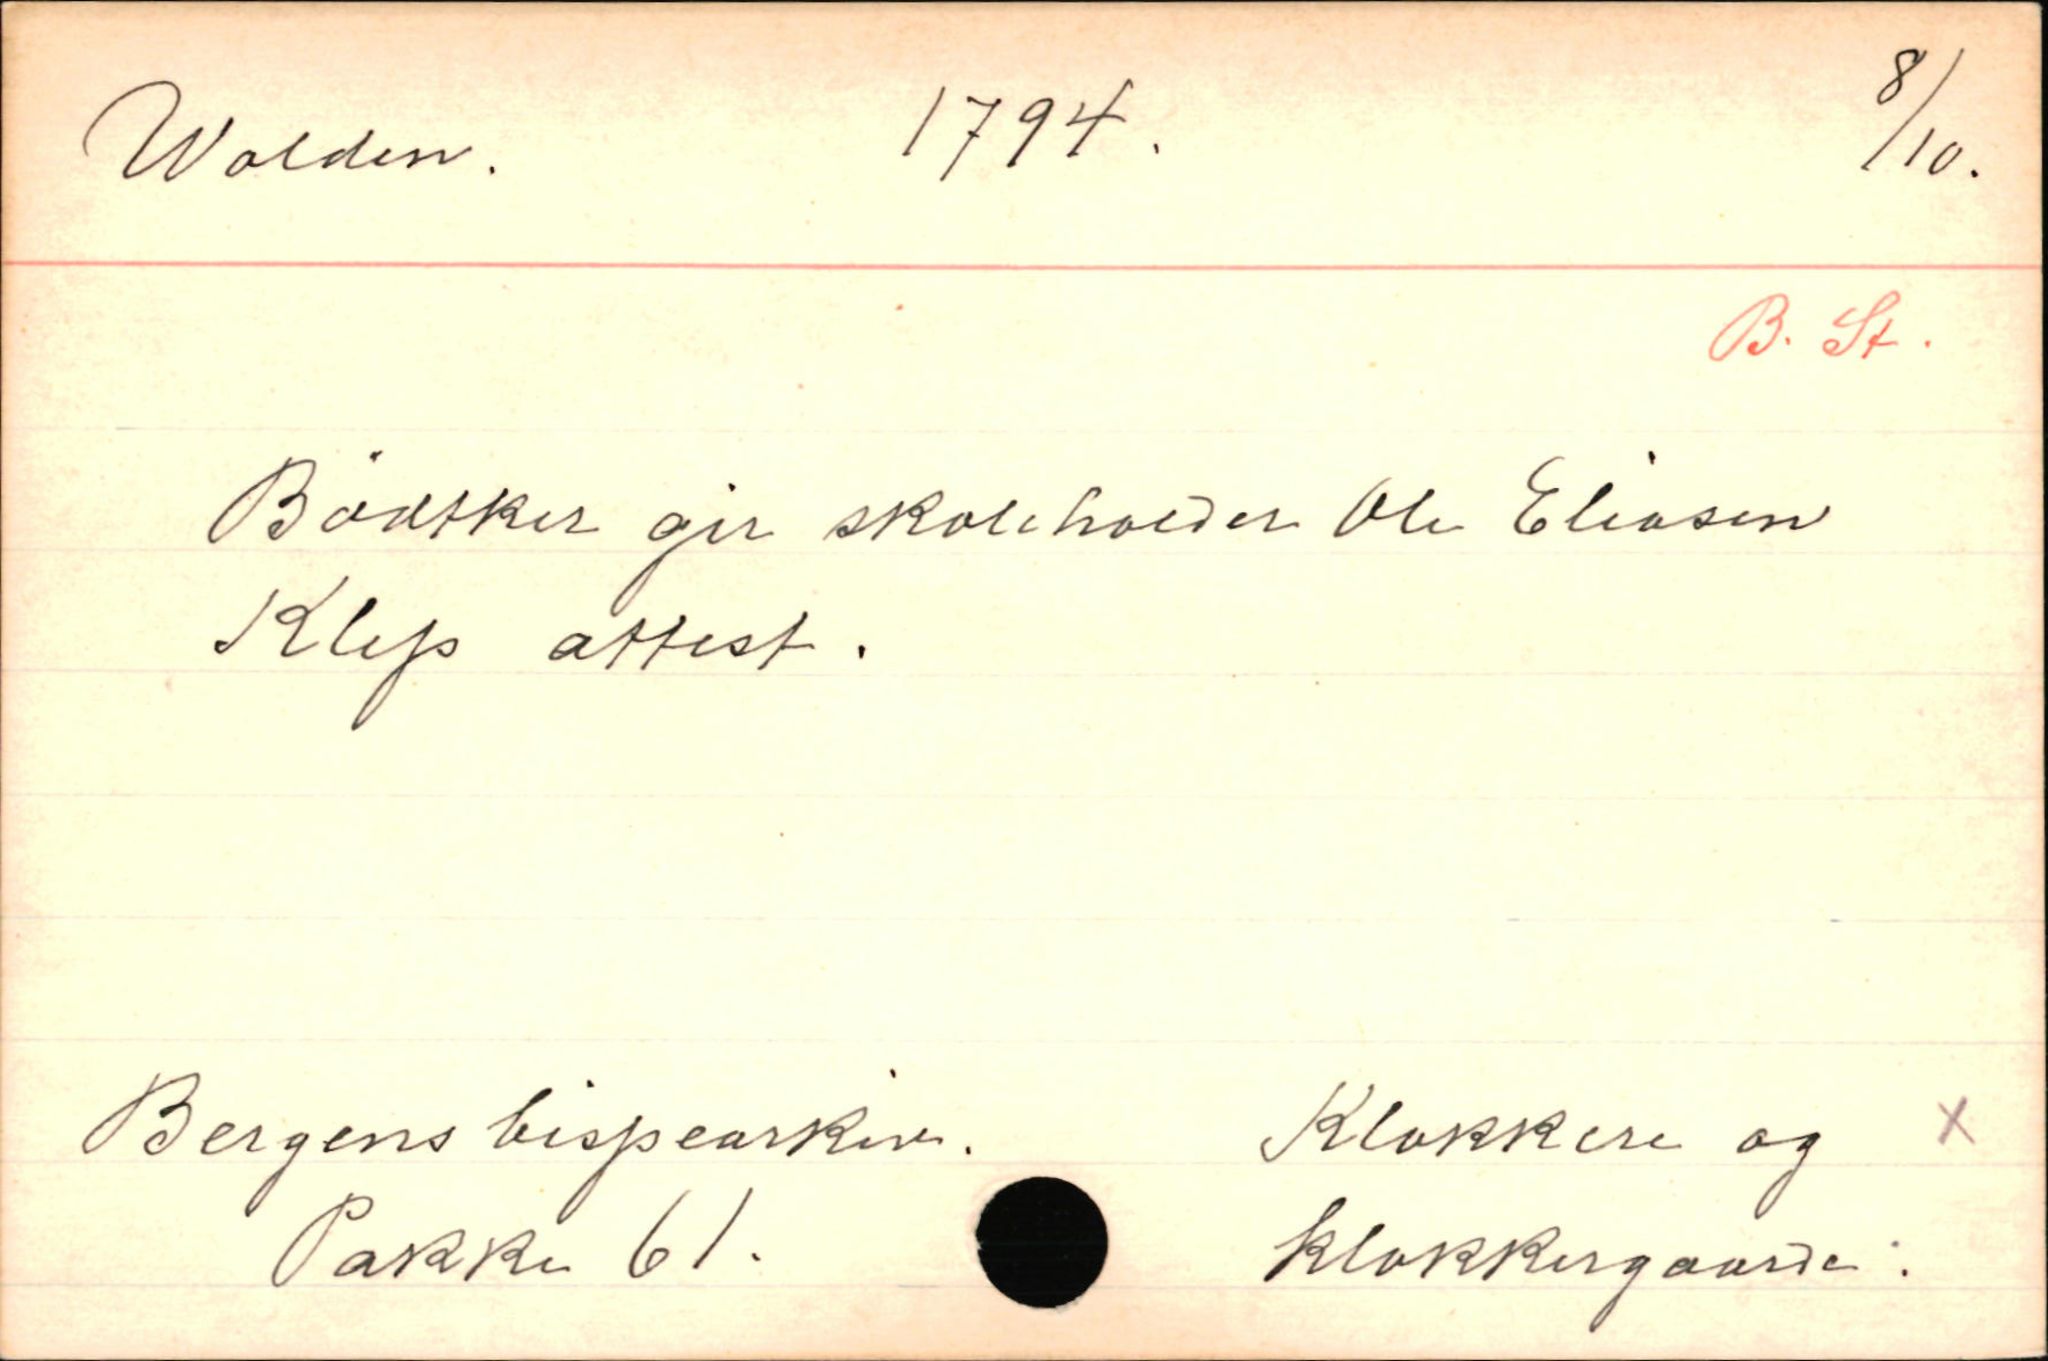 Wolden. 1794. 8/10.
B. St.
Bödtker gir skoleholder Ole Eliasen
Klep attest.
Bergens bispearkiv. Klokkere og x
Pakke 61. klokkergaarde.